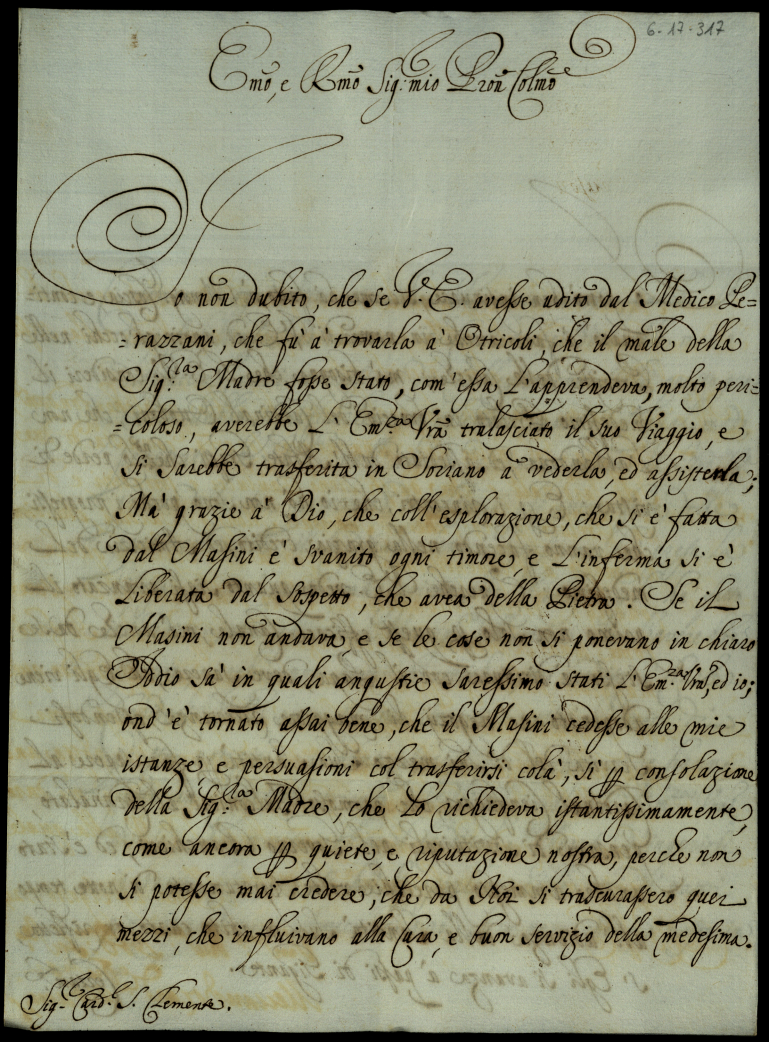 6-17-317
Em̃o, e Rm̃o Sig.r mio Pron̄ Colm̃o
Io non dubito, che se V. E. avesse udito dal Medico Pe=
=razzani, che fù à trovarla à Otricoli, che il male della
Sig.ra Madre fosse stato, com'essa l'apprendeva, molto peri=
=coloso, averebbe l'Em.za Vrã tralasciato il suo Viaggio, e
si sarebbe trasferita in Soriano à vederla, ed assisterla;
Mà grazie à Dio, che coll'esplorazione, che si è fatta
dal Masini è svanito ogni timore, e l'inferma si è
liberata dal sospetto, che avea della Pietra. Se il
Masini non andava, e se le cose non si ponevano in chiaro
Iddio sà in quali angustie saressimo stati l'Em.za Vrã, ed io;
ond'è tornato assai bene, che il Masini cedesse alle mie
istanze, e persuasioni col trasferirsi colà, sì p consolazione
della Sig.ra Madre, che lo richiedeva istantissimamente,
come ancora p quiete, e riputazione nostra, perche non
si potesse mai credere, che da Noi si trascurassero quei
mezzi, che influivano alla Cura, e buon servizio della medesima.
Sig.r Card.l S. Clemente.